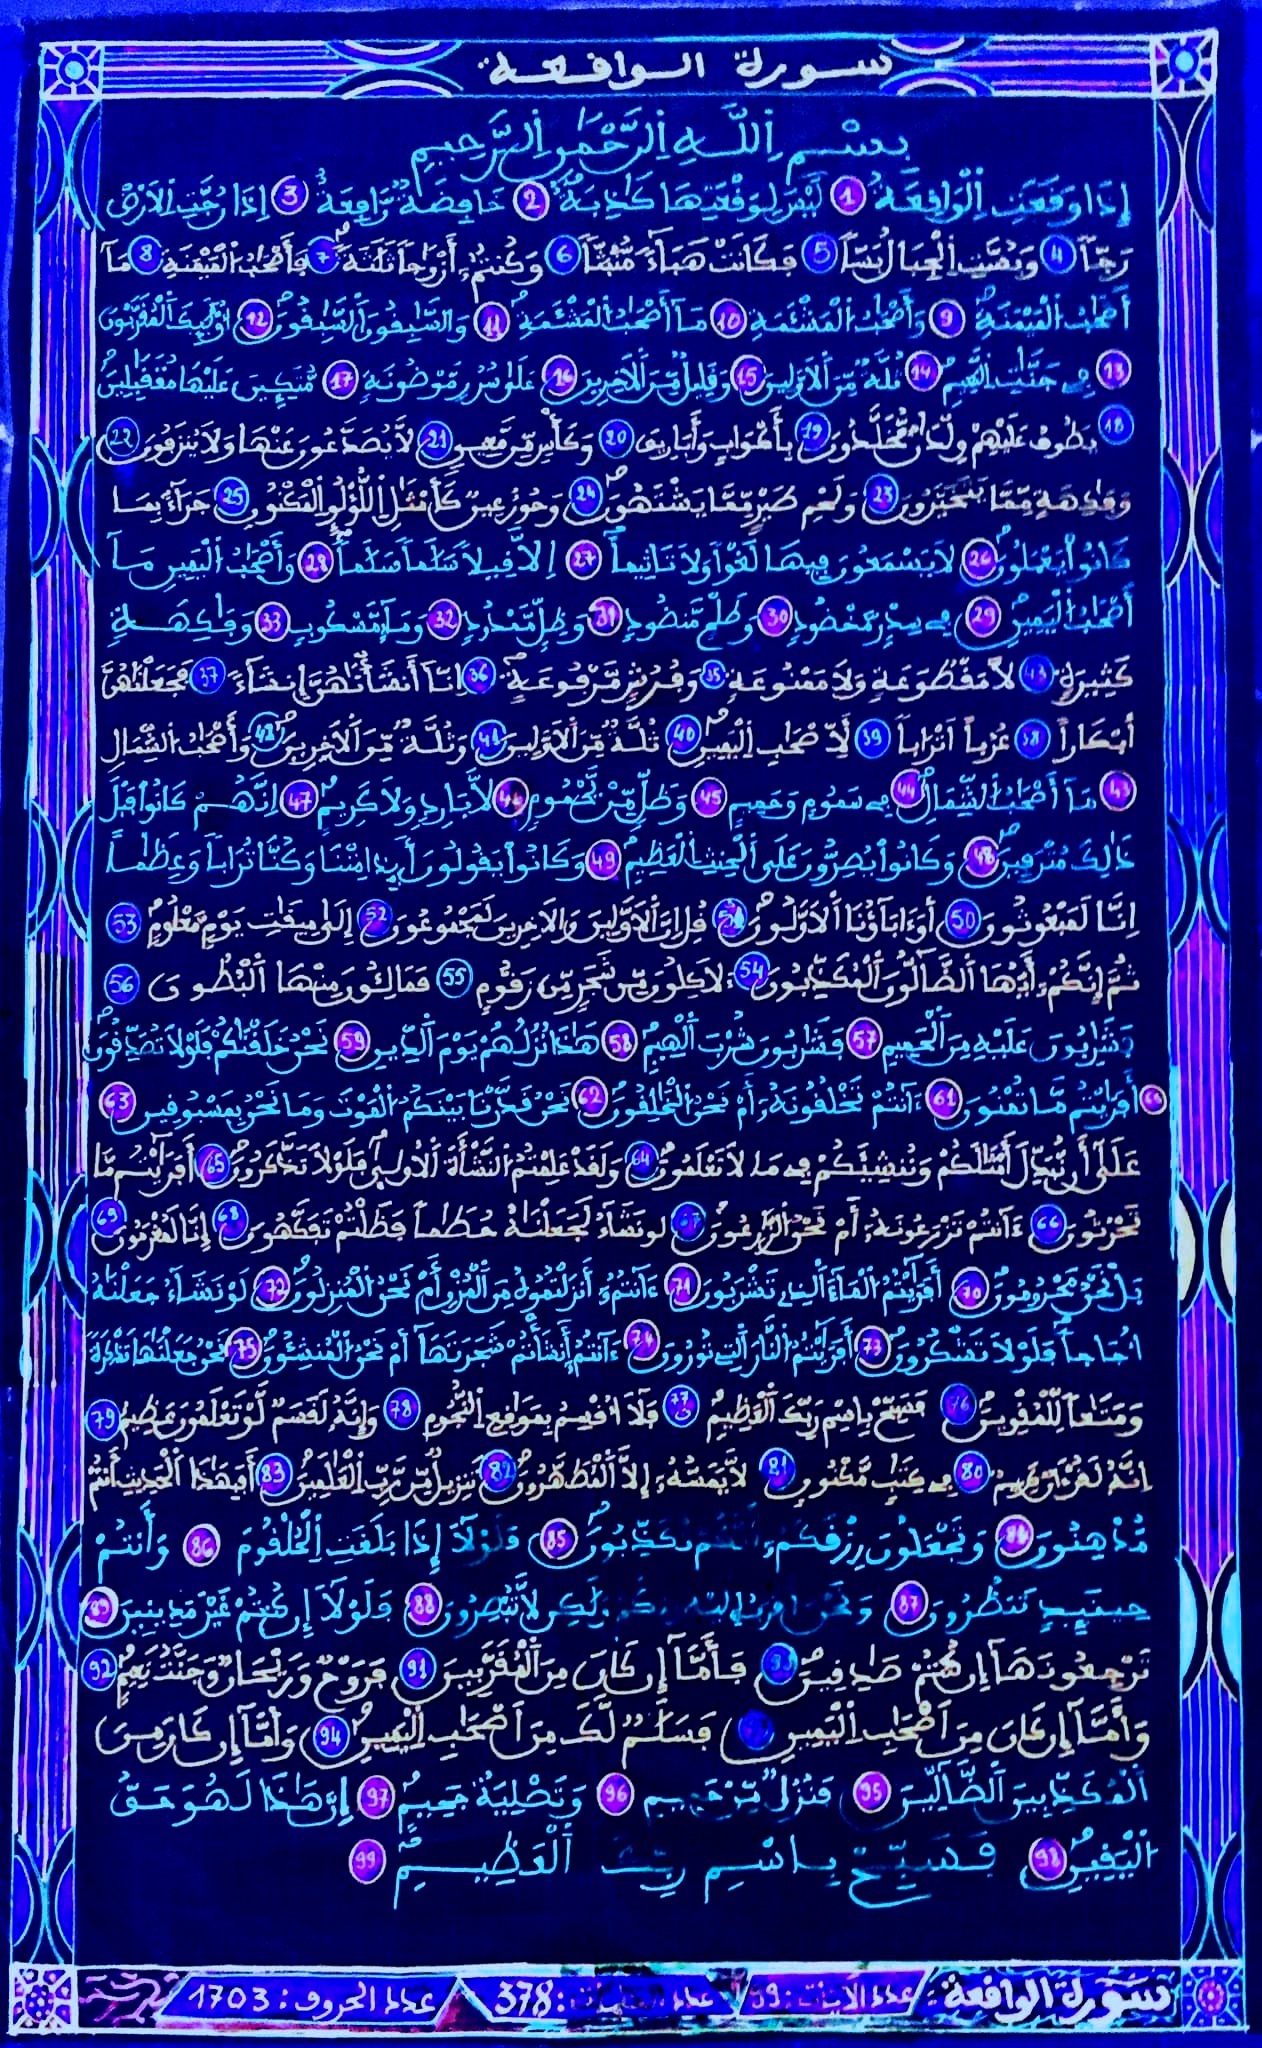 سورة الواقعة
بسم الله الرحمن الرحيم
إذا وقعت الواقعة 1 ليس لوقعتها كاذبة 2 خافضة رافعة 3 إذا رجت الارض
رجا 4 وبست الجبال بسا 5 فكانت هباء منبثا 6 وكنتم أزواجا ثلثة 7 فأصحب الميمنة 8 ما
أصحب الميمنة 9 وأصحب المشئمة 10 ما أصحب المشئمة 11 والسبقون السبقون 12 أولئك المقربون
13 في جنت النعيم 14 ثلة من الاولين 15 وقليل من الاخرين 16 على سرر موضونة 17 متكين عليها متقبلين
18 يطوف عليهم ولدان مخلدون 19 بأكواب وأباريق 20 وكأس من معين 21 لا يصدعون عنها ولا ينزفون 22
وفكهة مما يتخيرون 23 ولحم طير مما يشتهون 24 وحور عين كأمثل اللؤلو المكنون 25 جزاء بما
كانوا يعملون 26 لا يسمعون فيها لغوا ولا تاثيما 27 إلا قيلا سلما سلما 28 وأصحب اليمين ما
أصحب اليمين 29 في سدر مخضود 30 وطلح منضود 31 وظل ممدود 32 وماء مسكوب 33 وفكهة
كثيرة لا مقطوعة ولا ممنوعة 35 وفرش مرفوعة 36 إنا أنشأنهن إنشاء 37 فجعلنهن
أبكارا 38 عربا اترابا 39 لأصحب اليمين 40 ثلة من الاولين 41 وثلة من الاخرين 42 وأصحب الشمال
43 ما أصحب الشمال 44 في سموم وحميم 45 وظل من يحموم 46 لا بارد ولا كريم 47 إنهم كانوا قبل
ذلك مترفين 48 وكانوا يصرون على الحنث العظيم 49 وكانوا يقولون أيذا متنا وكنا ترابا وعظما
إنا لمبعوثون 50 أو ءاباؤنا الاولون 51 قل إن الاولين والاخرين لمجموعون 52 إلى ميقت يوم معلوم 53
ثم إنكم أيها الضالون المكذبون 54 لأكلون من شجر من زقوم 55 فمالئون منها البطون 56
فشربون عليه من الحميم 57 فشربون شرب الهيم 58 هذا نزلهم يوم الدين 59 نحن خلقنكم فلولا تصدقون
أفرأيتم ما تمنون 61 ءانتم تخلقونه أم نحن الخلقون 62 نحن قدرنا بينكم الموت وما نحن بمسبوقين 63
على أن نبدل أمثلكم وننشئكم في ما لا تعلمون 64 ولقد علمتم النشأة الاولى فلولا تذكرون 65 أفرأيتم ما
تحرثون 66 ءانتم تزرعونه أم نحن الزرعون 67 لو نشاء لجعلنه حطما فظلتم تفكهون 68 إنا لمغرمون 69
بل نحن محرومون 70 أفرأيتم الماء الذي تشربون 71 ءانتم أنزلتموه من المزن أم نحن المنزلون 72 لو نشاء جعلنه
أجاجا فلولا تشكرون 73 أفرأيتم النار التي تورون 74 ءانتم أنشأتم شجرتها أم نحن المنشئون 75 نحن جعلنها تذكرة
ومتعا للمقوين 76 فسبح باسم ربك العظيم 77 فلا أقسم بموقع النجوم 78 وإنه لقسم لو تعلمون عظيم 79
إنه لقرءان كريم 80 في كتب مكنون 81 لا يمسه إلا المطهرون 82 تنزيل من رب العلمين 83 أفبهذا الحديث أنتم
مدهنون وتجعلون رزقكم أنكم تكذبون 85 فلولا إذا بلغت الحلقوم 86 وأنتم
حينئذ تنظرون 87 ونحن أقرب إليه منكم ولكن لا تبصرون 88 فلولا إن كنتم غير مدينين 89
ترجعونها إن كنتم صدقين فأما إن كان من المقربين 91 فروح وريحان وجنت نعيم 92
وأما إن كان من أصحب اليمين فسلم لك من أصحب اليمين 94 وأما إن كان من
المكذبين الضالين 95 فنزل من حميم 96 وتصلية جحيم 97 إن هذا لهو حق
اليقين 98 فسبح باسم ربك العظيم 99
سورة الواقعة عدد الآيات: 99 عدد الكلمات: 378 عدد الحروف: 1703